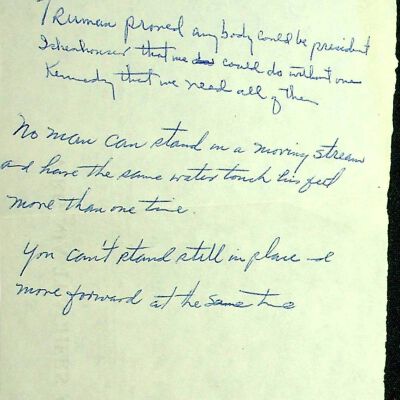 Truman proved any body could be president
Ishenhouser that we could do without one
Kennedy that we need all of them
No man can stand in a moving stream
and have the same water touch his feet
more than one time.
You can't stand still in place &
move forward at the same time